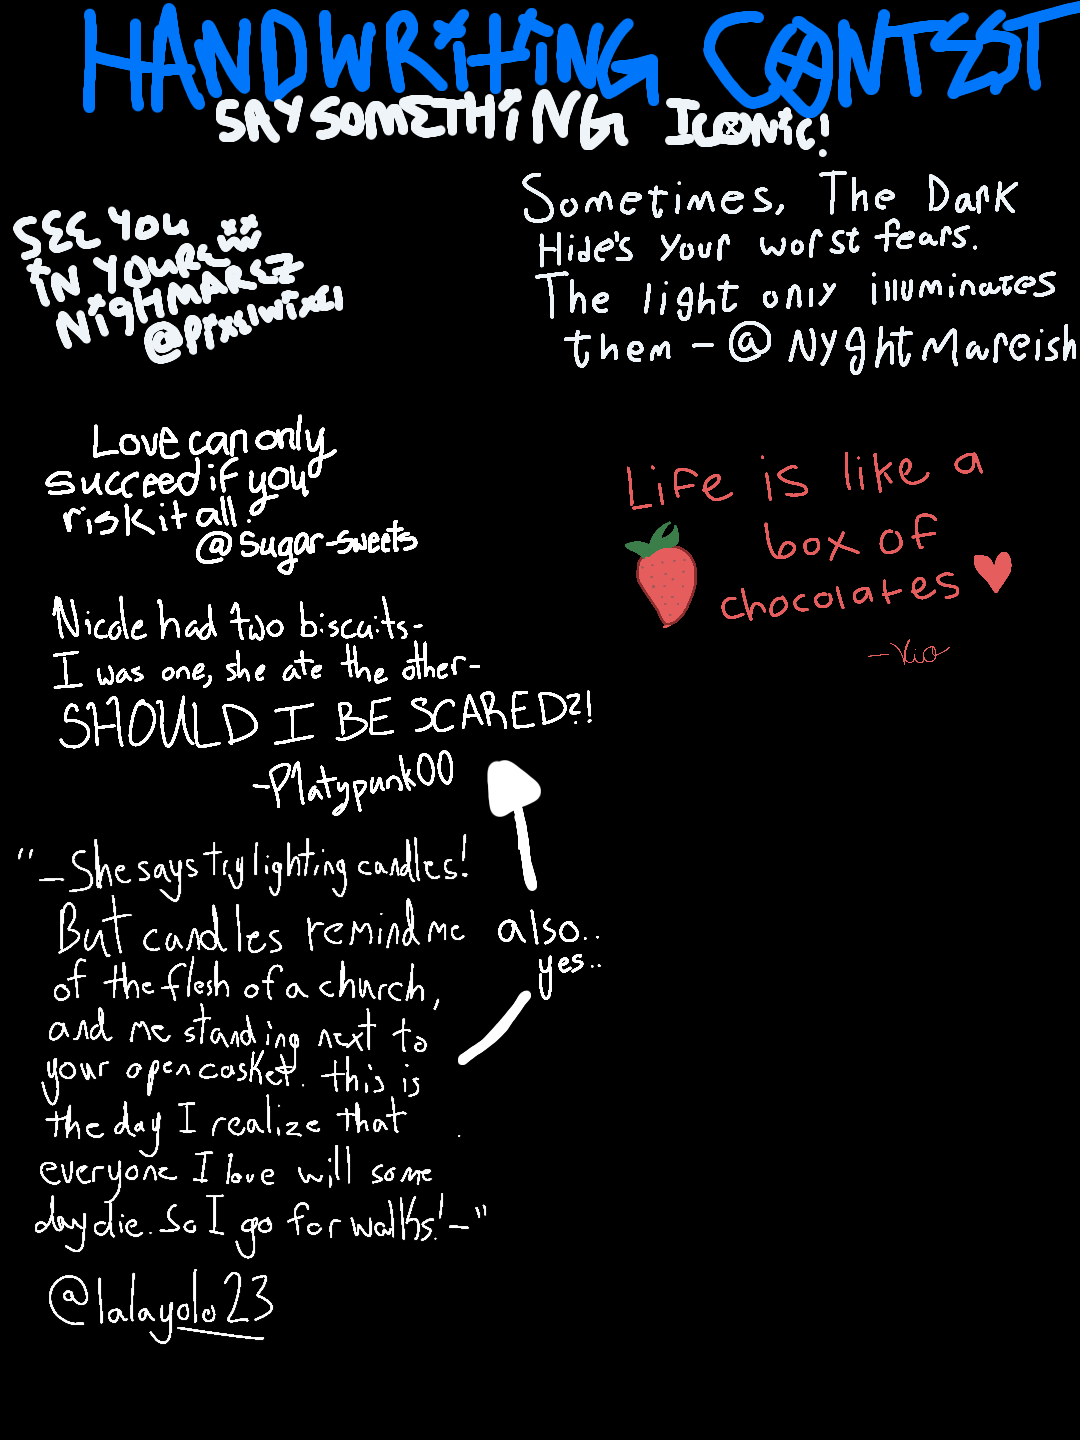 HANDWRITING CONTEST
SAY SOMETHING ICONIC!
SEE YOU
IN YOURE
NIGHTMAREZ
@pixelwixel
Sometimes, The Dark
Hide's your worst fears.
The light only illuminates
them - @NyghtMareish
Love can only
succeed if you
risk it all.
@Sugar-sweets
Life is like a
box of
chocolates
-Kio
Nicole had two biscuits-
I was one, she ate the other-
SHOULD I BE SCARED?!
-Platypunk00
"-She says try lighting candles!
But candles remind me
of the flesh of a church,
and me standing next to
your open casket. this is
the day I realize that
everyone I love will some
day die. So I go for walks!-"
@lalayolo23
also..
yes..